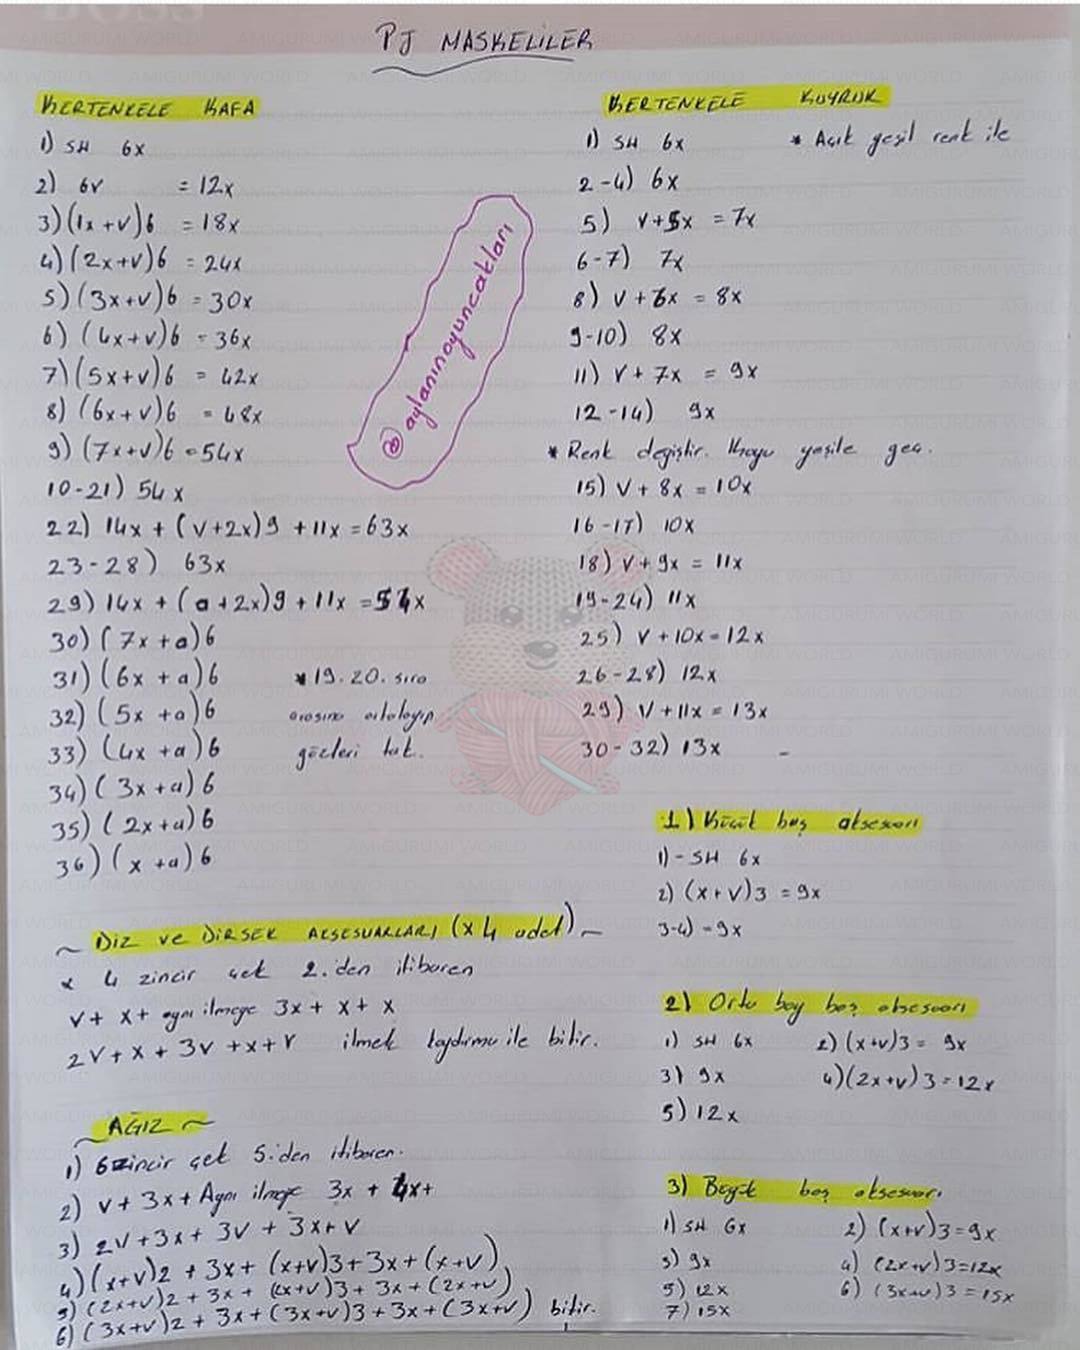 PJ MASKELİLER
KERTENKELE KAFA
1) SH 6x
2) 6v = 12x
3) (1x + v)6 = 18x
4) (2x+v)6 = 24x
5) (3x+v)6 = 30x
6) (4x+v)6 = 36x
7) (5x+v)6 = 42x
8) (6x+v)6 = 48x
9) (7x+v)6 = 54x
10-21) 54x
22) 14x + (v+2x)9 + 11x = 63x
23-28) 63x
29) 14x + (a+2x)9 + 11x = 54x
30) (7x+a)6
31) (6x +a)6
32) (5x +a)6
33) (4x +a)6
34) (3x+a)6
35) (2x+a)6
36) (x +a)6
* 19.20. sıra
arasına ortalayıp
gözleri tak.
@aylanınoyuncakları
~ DİZ VE DİRSEK AKSESUARLARI (x4 adet) ~
x 4 zincir çek 2.den itibaren
v+ x+ aynı ilmeğe 3x + x + x
2v + x + 3v + x + v ilmek kaydırma ile bitir.
~ AĞIZ ~
1) 6 zincir çek 5.den itibaren.
2) v+3x+ Aynı ilmeğe 3x + 4x+
3) 2v+3x+ 3v + 3x+v
4) (x+v)2 + 3x+ (x+v)3+3x+(x+v)
5) (2x+v)2 + 3x + (2x+v)3+ 3x+(2x+v)
6) (3x+v)2 + 3x+(3x+v)3+3x+(3x+v) bitir.
KERTENKELE KUYRUK
1) SH 6x * Açık yeşil renk ile
2-4) 6x
5) v+5x = 7x
6-7) 7x
8) v+6x = 8x
9-10) 8x
11) v+ 7x = 9x
12-14) 9x
* Renk değiştir. Koyu yeşile geç.
15) v+ 8x = 10x
16-17) 10x
18) v+ 9x = 11x
19-24) 11x
25) v +10x = 12x
26-28) 12x
29) v+11x = 13x
30-32) 13x -
1) Küçük baş aksesuarı
1)- SH 6x
2) (x+v)3 = 9x
3-4) = 9x
2) Orta boy baş aksesuarı
1) SH 6x 2) (x+v)3 = 9x
3) 9x 4) (2x+v)3=12x
5) 12x
3) Büyük baş aksesuarı
1) SH 6x 2) (x+v)3=9x
3) 9x 4) (2x+v)3=12x
5) 12x 6) (3x+v)3=15x
7) 15x
AMIGURUMI WORLD